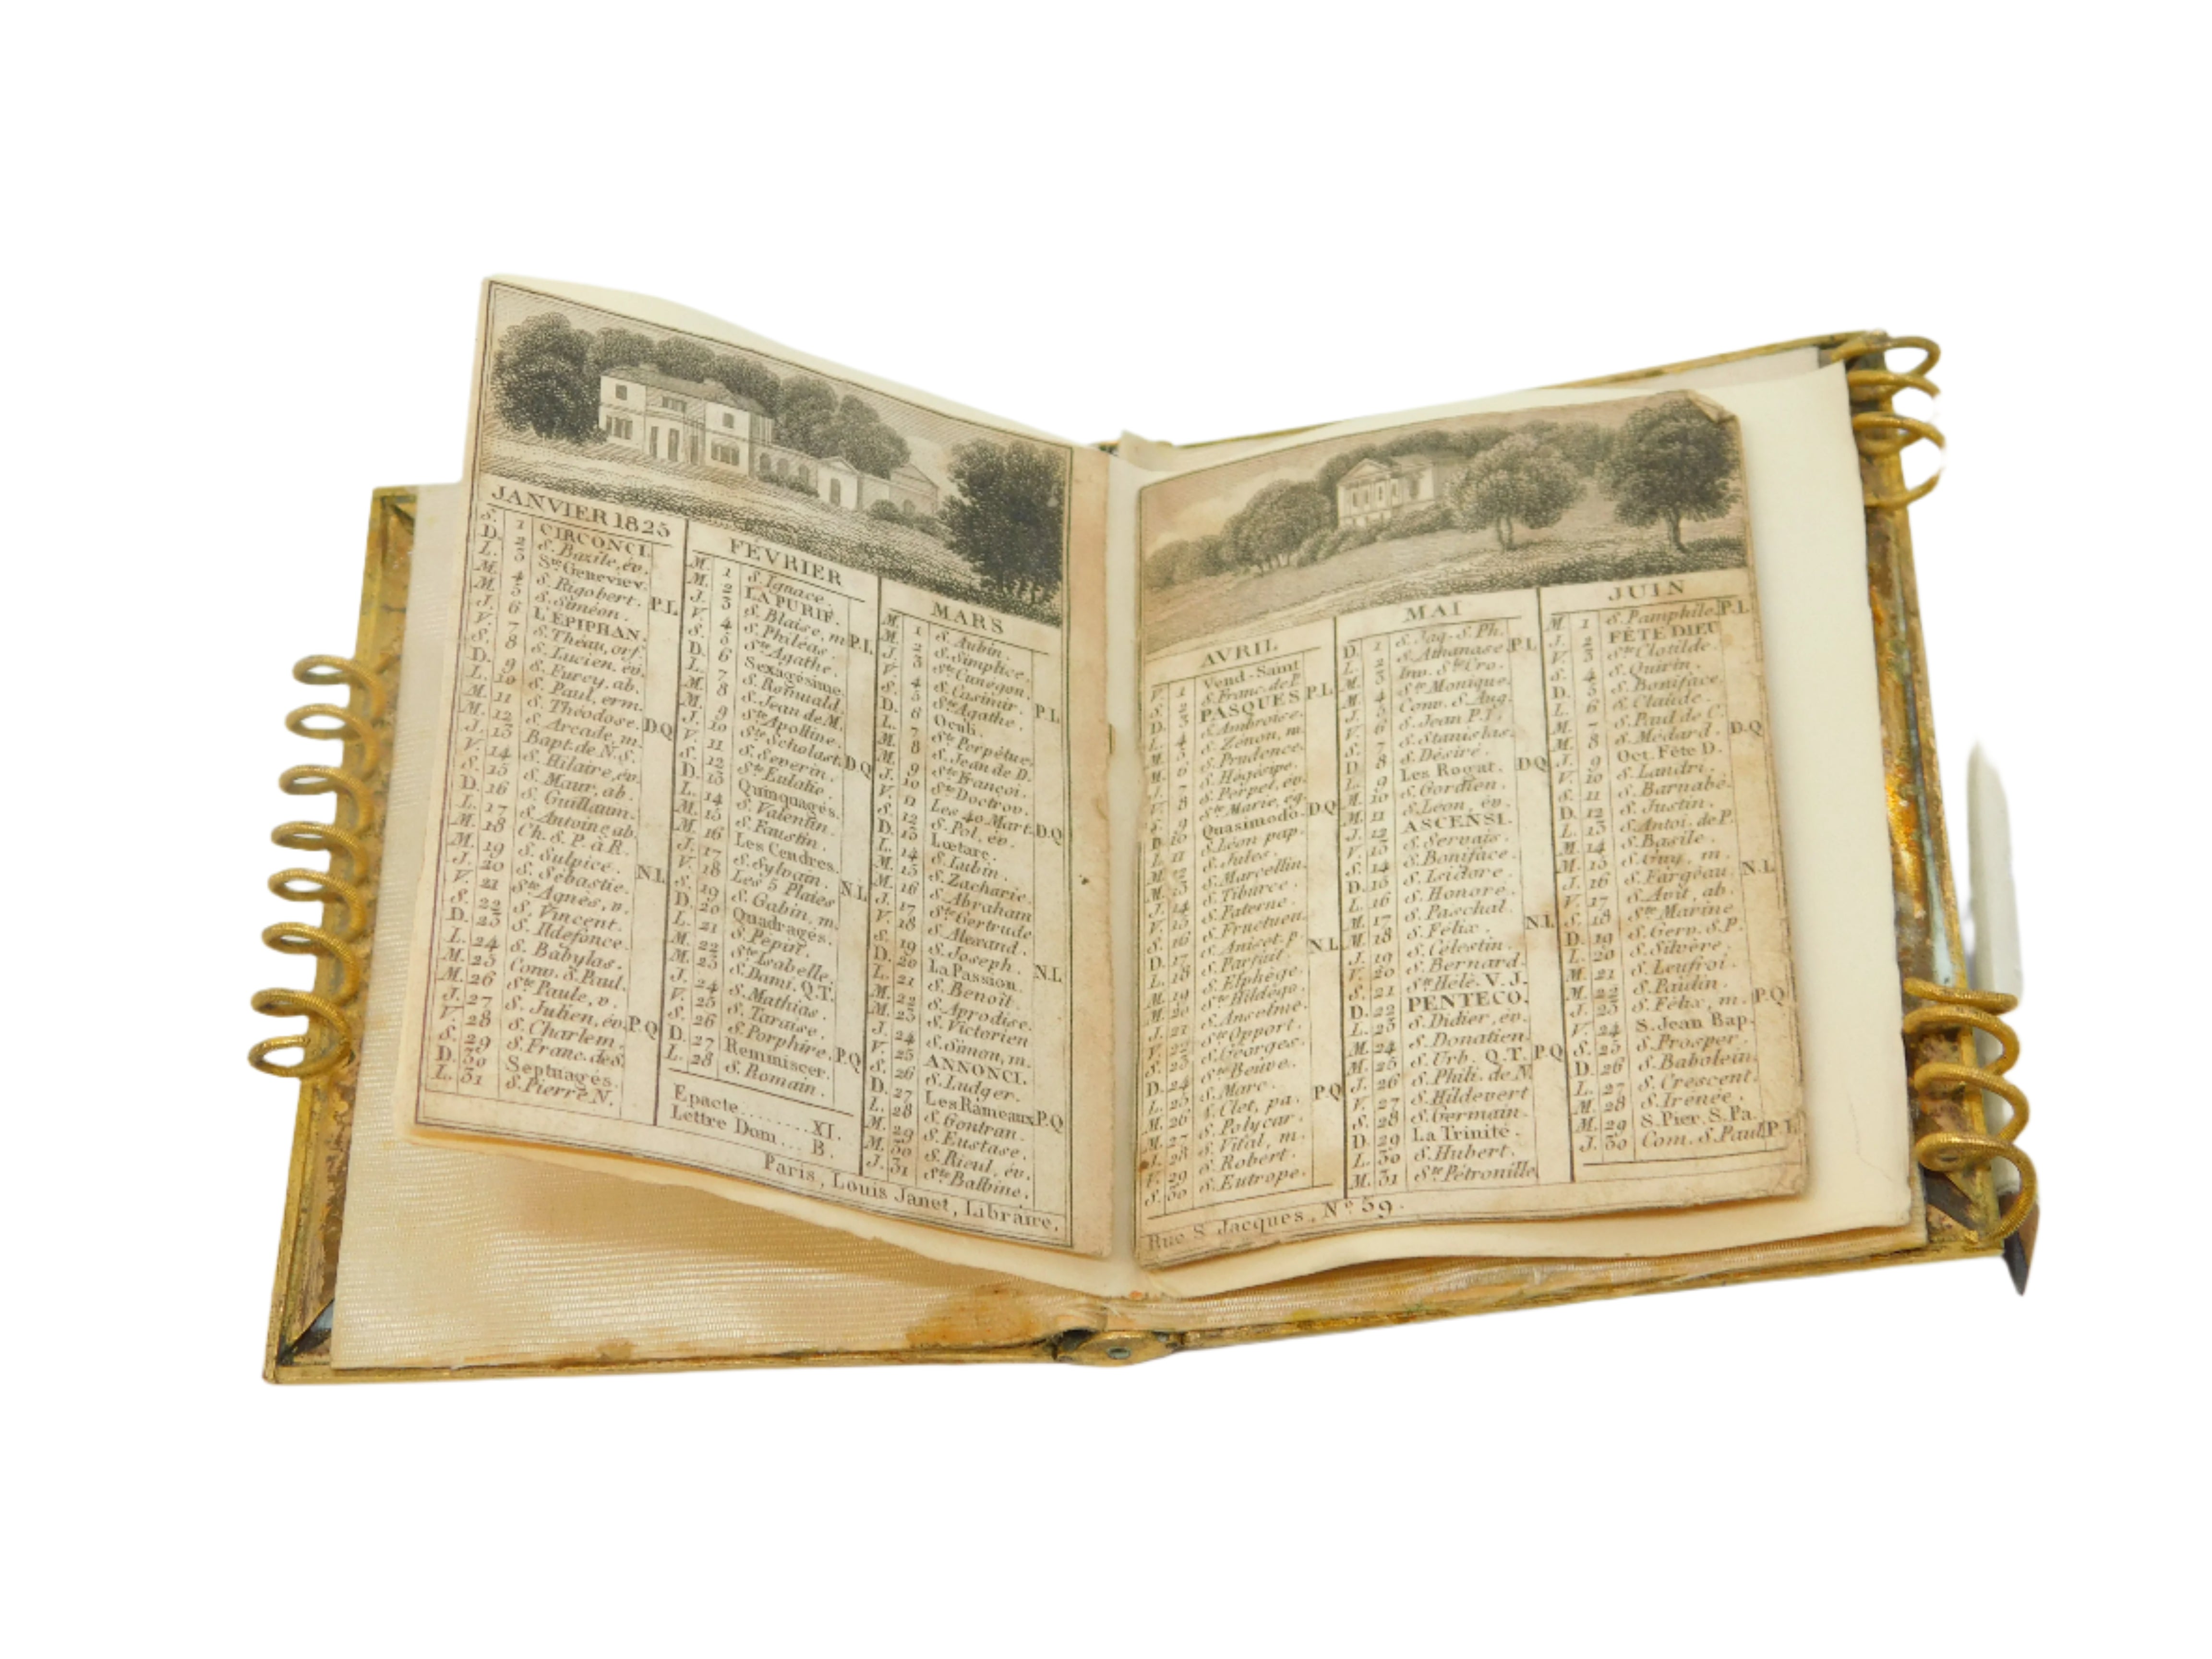 JANVIER 1825
S. 1 CIRCONCI.
D. 2 S. Bazile, év.
L. 3 Ste Geneviev.
M. 4 S. Rigobert. P.L
M. 5 S. Siméon.
J. 6 L'ÉPIPHAN.
V. 7 S. Théau, orf.
S. 8 S. Lucien, év.
D. 9 S. Furcy, ab.
L. 10 S. Paul, erm.
M. 11 S. Théodose. D.Q
M. 12 S. Arcade, m.
J. 13 Bapt. de N. S.
V. 14 S. Hilaire, év.
S. 15 S. Maur, ab.
D. 16 S. Guillaum.
L. 17 S. Antoine ab.
M. 18 Ch. S. P. à R.
M. 19 S. Sulpice. N.L
J. 20 S. Sébastie.
V. 21 Ste Agnès, v.
S. 22 S. Vincent.
D. 23 S. Ildefonce.
L. 24 S. Babylas.
M. 25 Conv. S. Paul.
M. 26 Ste Paule, v.
J. 27 S. Julien, év. P.Q
V. 28 S. Charlem.
S. 29 S. Franc. de S.
D. 30 Septuagés.
L. 31 S. Pierre N.
FÉVRIER
M. 1 S. Ignace.
M. 2 LA PURIF.
J. 3 S. Blaise, m P.L
V. 4 S. Philéas.
S. 5 Ste Agathe.
D. 6 Sexagésime.
L. 7 S. Romuald.
M. 8 S. Jean de M.
M. 9 Ste Apolline.
J. 10 Ste Scholast. D.Q
V. 11 S. Severin.
S. 12 Ste Eulalie.
D. 13 Quinquagés.
L. 14 S. Valentin.
M. 15 S. Faustin.
M. 16 Les Cendres.
J. 17 S. Sylvain. N.L
V. 18 Les 5 Plaies
S. 19 S. Gabin, m.
D. 20 Quadragés.
L. 21 S. Pépin.
M. 22 Ste Isabelle.
M. 23 S. Dami. Q.T.
J. 24 S. Mathias.
V. 25 S. Taraise.
S. 26 S. Porphire. P.Q
D. 27 Reminiscer.
L. 28 S. Romain.
Epacte.......XI.
Lettre Dom... B.
MARS
M. 1 S. Aubin.
M. 2 S. Simplice.
J. 3 Ste Cunégon.
V. 4 S. Casimir. P.L
S. 5 Ste Agathe.
D. 6 Oculi.
L. 7 Ste Perpétue.
M. 8 S. Jean de D.
M. 9 Ste Françoi.
J. 10 S. Doctrov.
V. 11 Les 40 Mart. D.Q
S. 12 S. Pol, év.
D. 13 Lœtare.
L. 14 S. Lubin.
M. 15 S. Zacharie.
M. 16 S. Abraham
J. 17 Ste Gertrude
V. 18 S. Alexand.
S. 19 S. Joseph. N.L
D. 20 La Passion.
L. 21 S. Benoît.
M. 22 S. Aprodise.
M. 23 S. Victorien
J. 24 S. Simon, m.
V. 25 ANNONCI.
S. 26 S. Ludger.
D. 27 Les Rameaux P.Q
L. 28 S. Gontran.
M. 29 S. Eustase.
M. 30 S. Rieul, év.
J. 31 Ste Balbine.
Paris, Louis Janet, Libraire,
AVRIL
V. 1 Vend-Saint
S. 2 S. Franc. de P. P.L
D. 3 PASQUES
L. 4 S. Ambroise.
M. 5 S. Zénon, m.
M. 6 S. Prudence.
J. 7 S. Hégésipe.
V. 8 S. Perpet, év.
S. 9 Ste Marie, eg.
D. 10 Quasimodo. D.Q
L. 11 S. Léon pap.
M. 12 S. Jules.
M. 13 S. Marcellin.
J. 14 S. Tiburce.
V. 15 S. Paterne.
S. 16 S. Fructueu.
D. 17 S. Anicet. p. N.L
L. 18 S. Parfait.
M. 19 S. Elphége.
M. 20 Ste Hildégo.
J. 21 S. Anselme.
V. 22 Ste Opport.
S. 23 S. Georges.
D. 24 Ste Beuve.
L. 25 S. Marc. P.Q
M. 26 S. Clet, pa.
M. 27 S. Polycar.
J. 28 S. Vital, m.
V. 29 S. Robert.
S. 30 S. Eutrope.
MAI
D. 1 S. Jaq. S. Ph.
L. 2 S. Athanase. P.L
M. 3 Inv. Ste Cro.
M. 4 Ste Monique.
J. 5 Conv. S. Aug.
V. 6 S. Jean P.L.
S. 7 S. Stanislas.
D. 8 S. Désiré.
L. 9 Les Rogat. D.Q
M. 10 S. Gordien.
M. 11 S. Léon, év.
J. 12 ASCENSI.
V. 13 S. Servais.
S. 14 S. Boniface.
D. 15 S. Isidore.
L. 16 S. Honore.
M. 17 S. Paschal. N.L
M. 18 S. Félix.
J. 19 S. Célestin.
V. 20 S. Bernard.
S. 21 Ste Hélè. V. J.
D. 22 PENTECO.
L. 23 S. Didier, év.
M. 24 S. Donatien.
M. 25 S. Urb. Q.T. P.Q
J. 26 S. Phili. de N.
V. 27 S. Hildevert
S. 28 S. Germain.
D. 29 La Trinité.
L. 30 S. Hubert.
M. 31 Ste Pétronille
JUIN
M. 1 S. Pamphile. P.L
J. 2 FÊTE DIEU
V. 3 Ste Clotilde.
S. 4 S. Quirin.
D. 5 S. Boniface.
L. 6 S. Claude.
M. 7 S. Paul de C.
M. 8 S. Médard. D.Q
J. 9 Oct. Fête D.
V. 10 S. Landri.
S. 11 S. Barnabé.
D. 12 S. Justin.
L. 13 S. Antoi. de P.
M. 14 S. Basile.
M. 15 S. Guy, m.
J. 16 S. Fargeau. N.L
V. 17 S. Avit, ab.
S. 18 Ste Marine
D. 19 S. Gerv. S. P.
L. 20 S. Silvère.
M. 21 S. Leufroi.
M. 22 S. Paulin.
J. 23 S. Félix, m. P.Q
V. 24 S. Jean Bap.
S. 25 S. Prosper.
D. 26 S. Babolein.
L. 27 S. Crescent.
M. 28 S. Irénée.
M. 29 S. Pier. S. Pa.
J. 30 Com. S. Paul P.L
Rue S. Jacques, No 59.